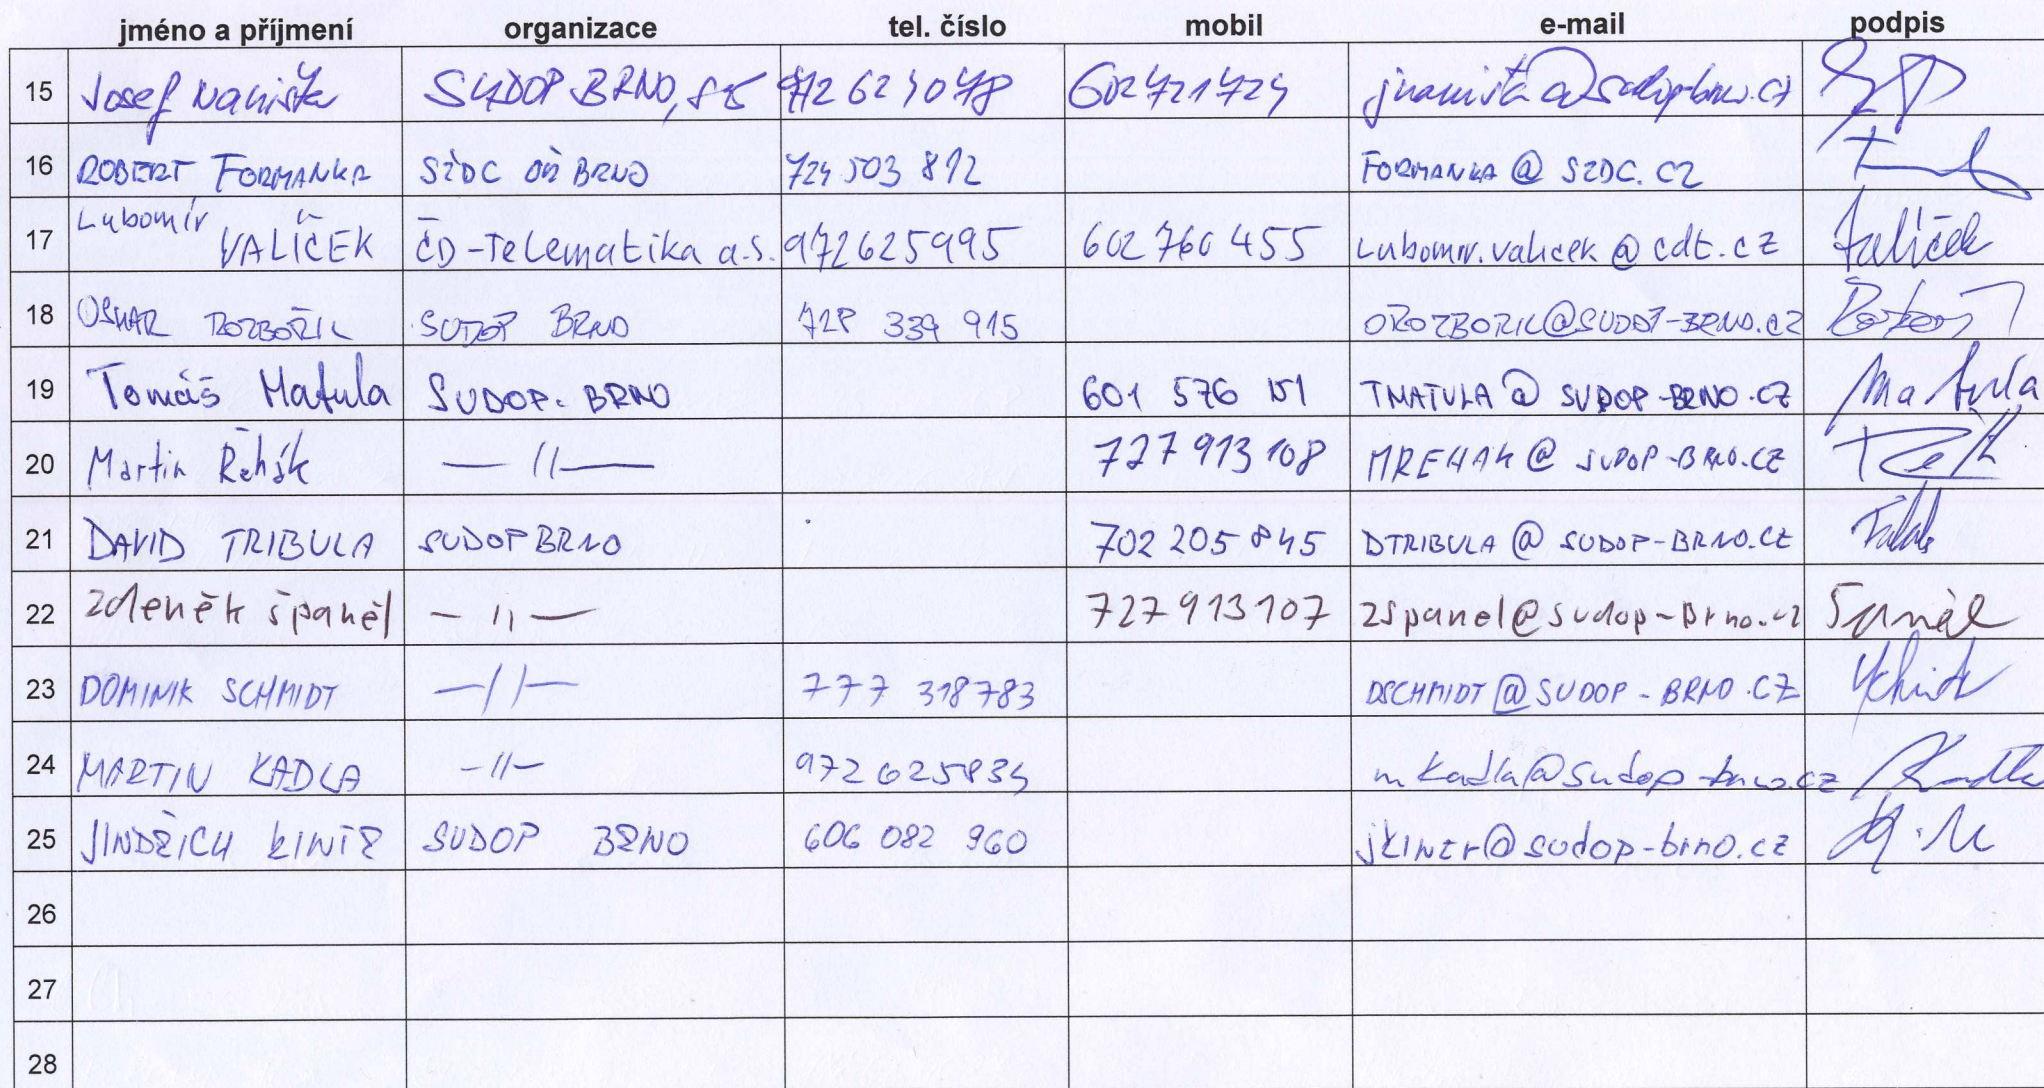 jméno a příjmení organizace tel. číslo mobil e-mail podpis
15 Josef SUDOP BRNO,
16 ROBERT FORMANKA SŽDC BRNO 724 503 812 FORMANKA @ SZDC.CZ
17 Lubomír VALÍČEK ČD-Telematika a.s. 972625995 602 760 455 Lubomir.valicek @ cdt.cz Valíček
18 OSKAR ROZBOŘIL SUDOP BRNO 728 339 915 OROZBORIL@SUDOP-BRNO.CZ
19 Tomáš Matula SUDOP-BRNO 601 576 151 TMATULA @ SUDOP-BRNO.CZ Matula
20 Martin Řehák — 11 — 727 913 108 MREHAK @ SUDOP-BRNO.CZ
21 DAVID TRIBULA SUDOP BRNO 702 205 845 DTRIBULA @ SUDOP-BRNO.CZ
22 Zdeněk Španěl — 11 — 727913107 zspanel@sudop-brno.cz Španěl
23 DOMINIK SCHMIDT — 11 — 777 318783 DSCHMIDT@SUDOP-BRNO.CZ
24 MARTIN KADLA — 11 — 972625834 mkadla@sudop-brno.cz
25 JINDŘICH SUDOP BRNO 606 082 960
26
27
28